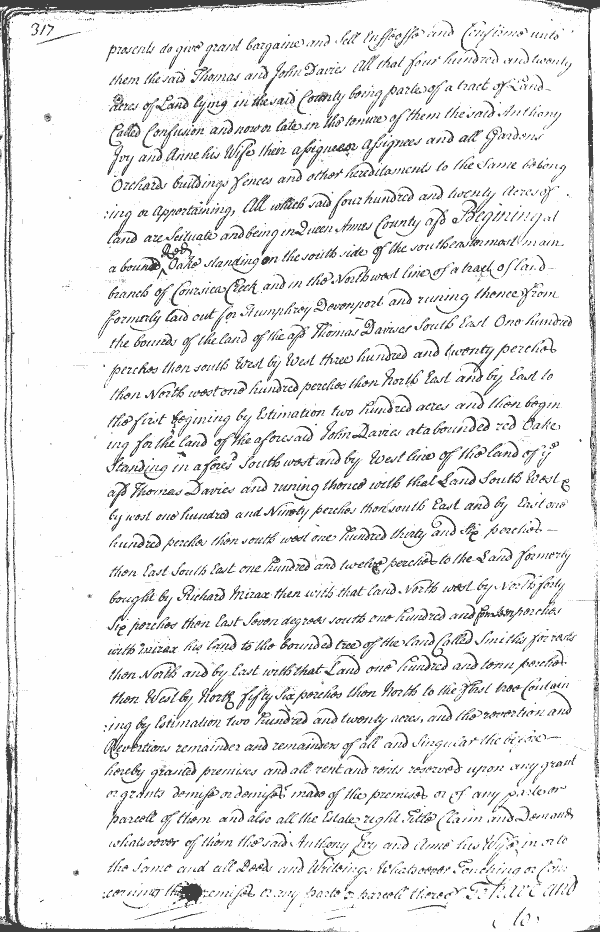 317
presents do give grant bargaine and Sell Enffeoffe and Confirme unto
them the said Thomas and John Davies All that four hundred and twenty
acres of Land lying in the said County being parte of a tract of Land
Called Confusion and now or late in the tenure of them the said Anthony
Ivy and Anne his Wife their assignees or Assignees and all Gardens
Orchards buildings fences and other hereditaments to the Same belong
:ing or Appertaining, All which said four hundred and twenty Acres of
land are Scituate and being in Queen Anns County afsd Begining at
a bounded Red Oake standing on the south side of the southeastermost main
branch of Coursica Creek and in the Northwest line of a tract of land
formerly laid out for Humphrey Devonport and runing thence from
the bounds of the land of the afsd Thomas Davises South East One hundred
perches then south West by West three hundred and twenty perches
then North west one hundred perches then North East and by East to
the first begining by Estimation two hundred acres and then begin
ing for the land of the aforesaid John Davies at a bounded red Oake
Standing in afores South west and by West line of the land of ye
afsd Thomas Davies and runing thence with that Land South West &
by west one hundred and Ninety perches then south East and by East one
hundred perches then south west one hundred thirty and Six perches
then East South East one hundred and twelve perches to the Land formerly
bought by Richard Mirax then with that land North west by North forty
Six perches then East Seven degrees south one hundred and perches
with mirax his land to the bounded tree of the land Called Smiths forrest
then North and by East with that Land one hundred and tenn perches
then West by North fifty Six perches then North to the first tree Contain
:ing by Estimation two hundred and twenty acres, and the revertion and
Revertions remainder and remainders of all and Singular the before
hereby granted premises and all rent and rents reserved upon any grant
or grants demise or demises made of the premises or of any parte or
parcell of them and also all the Estate right Title Claim and Demand
whatsoever of them the said Anthony Ivy and Anne his Wife in or to
the Same and all Deeds and Writeings Whatsoever Touching or Con
cerning the premises or any parte or parcell thereof To have and
to